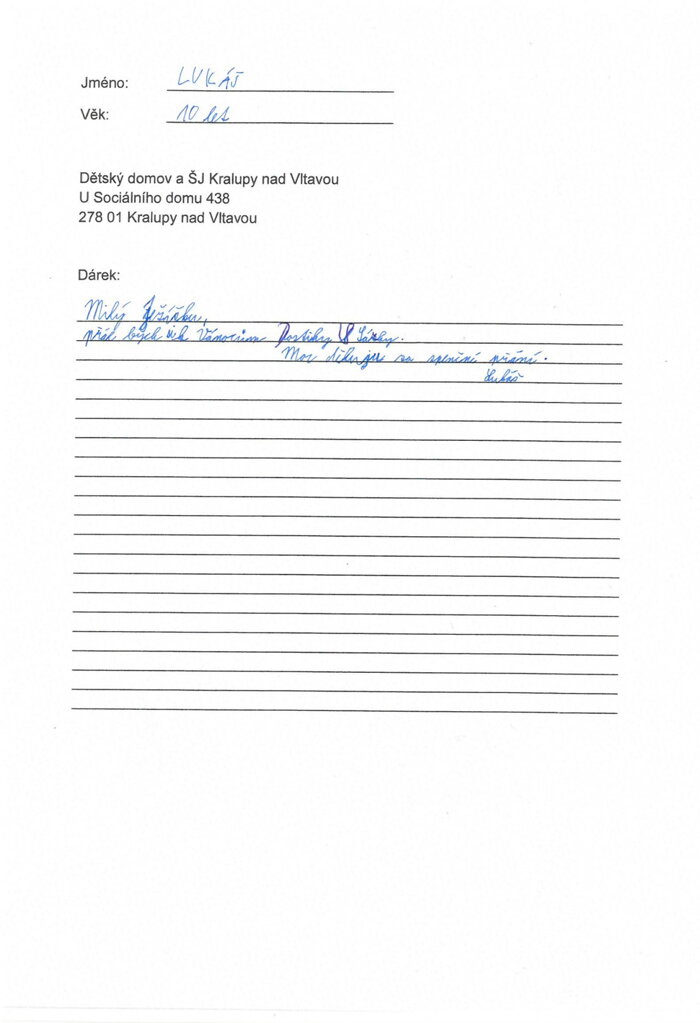 Jméno: LUKÁŠ
Věk: 10 let
Dětský domov a ŠJ Kralupy nad Vltavou
U Sociálního domu 438
278 01 Kralupy nad Vltavou
Dárek:
Milý Ježíšku,
přál bych si k Vánocům
Moc děkuju za splnění přání.
Lukáš